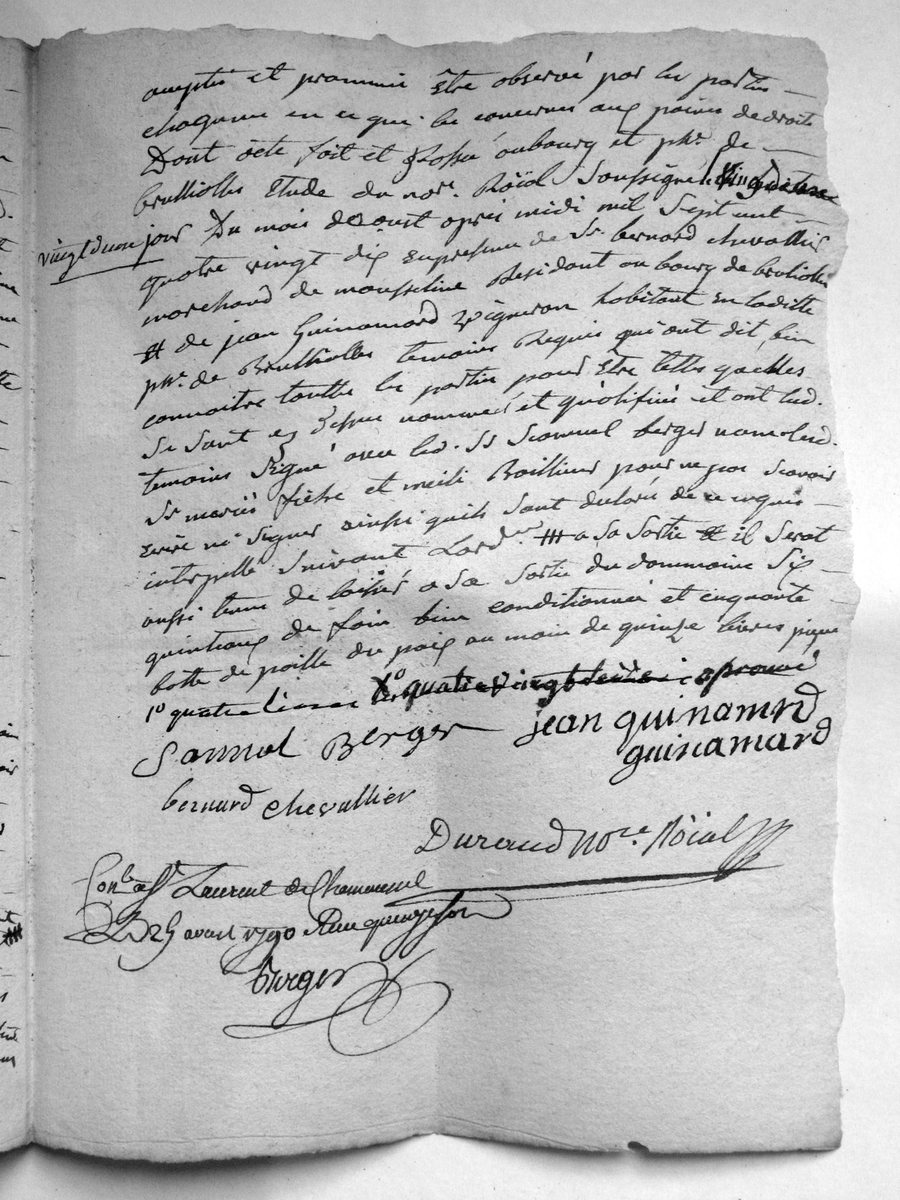 accptés et prommis être observé par les parties
chaqune en ce que les concernes aux peines de droits
Dont acte fait et passé aubourg et phe. de
brullioles Etude du nore. Roïal soussigné
vingt deux jour Du mois deaoust apres midi mil sept cent
quatre vingt dix enpresence de Sr. bernard chevallier
marchand de mousseline Residant au bourg de brulioles
et de jean Guinamard vigneron habitant en laditte
phe. de Brullioles temoins Requis qui ont dit bien
connaitre toutte les parties pour être telles quelles
se sont cy dessus nommées et qualifiées et ont led.
temoins signé avec led. Sr Samuel berger non led.
Sr mariés fiche et meili Baillieur pour ne pas scavoir
écrire ni signer ainsi quils sont declaré de ce enquis
interpellé suivant Lordce. a sa sortie il serat
aussi tenu de laisser a sa sortie du dommaine six
quintaux de foin bien conditionnée et cinquante
botte de paille du poix au moin de quinze livres piece
quatre vingt aprouvé
Samuel Berger jean guinamrd
guinamard
bernard chevallier
Durand No.re Roïal
Conlé a St Laurent de Chamousset
Le 25 aoust 1790 Reçu quinze sols
Berger